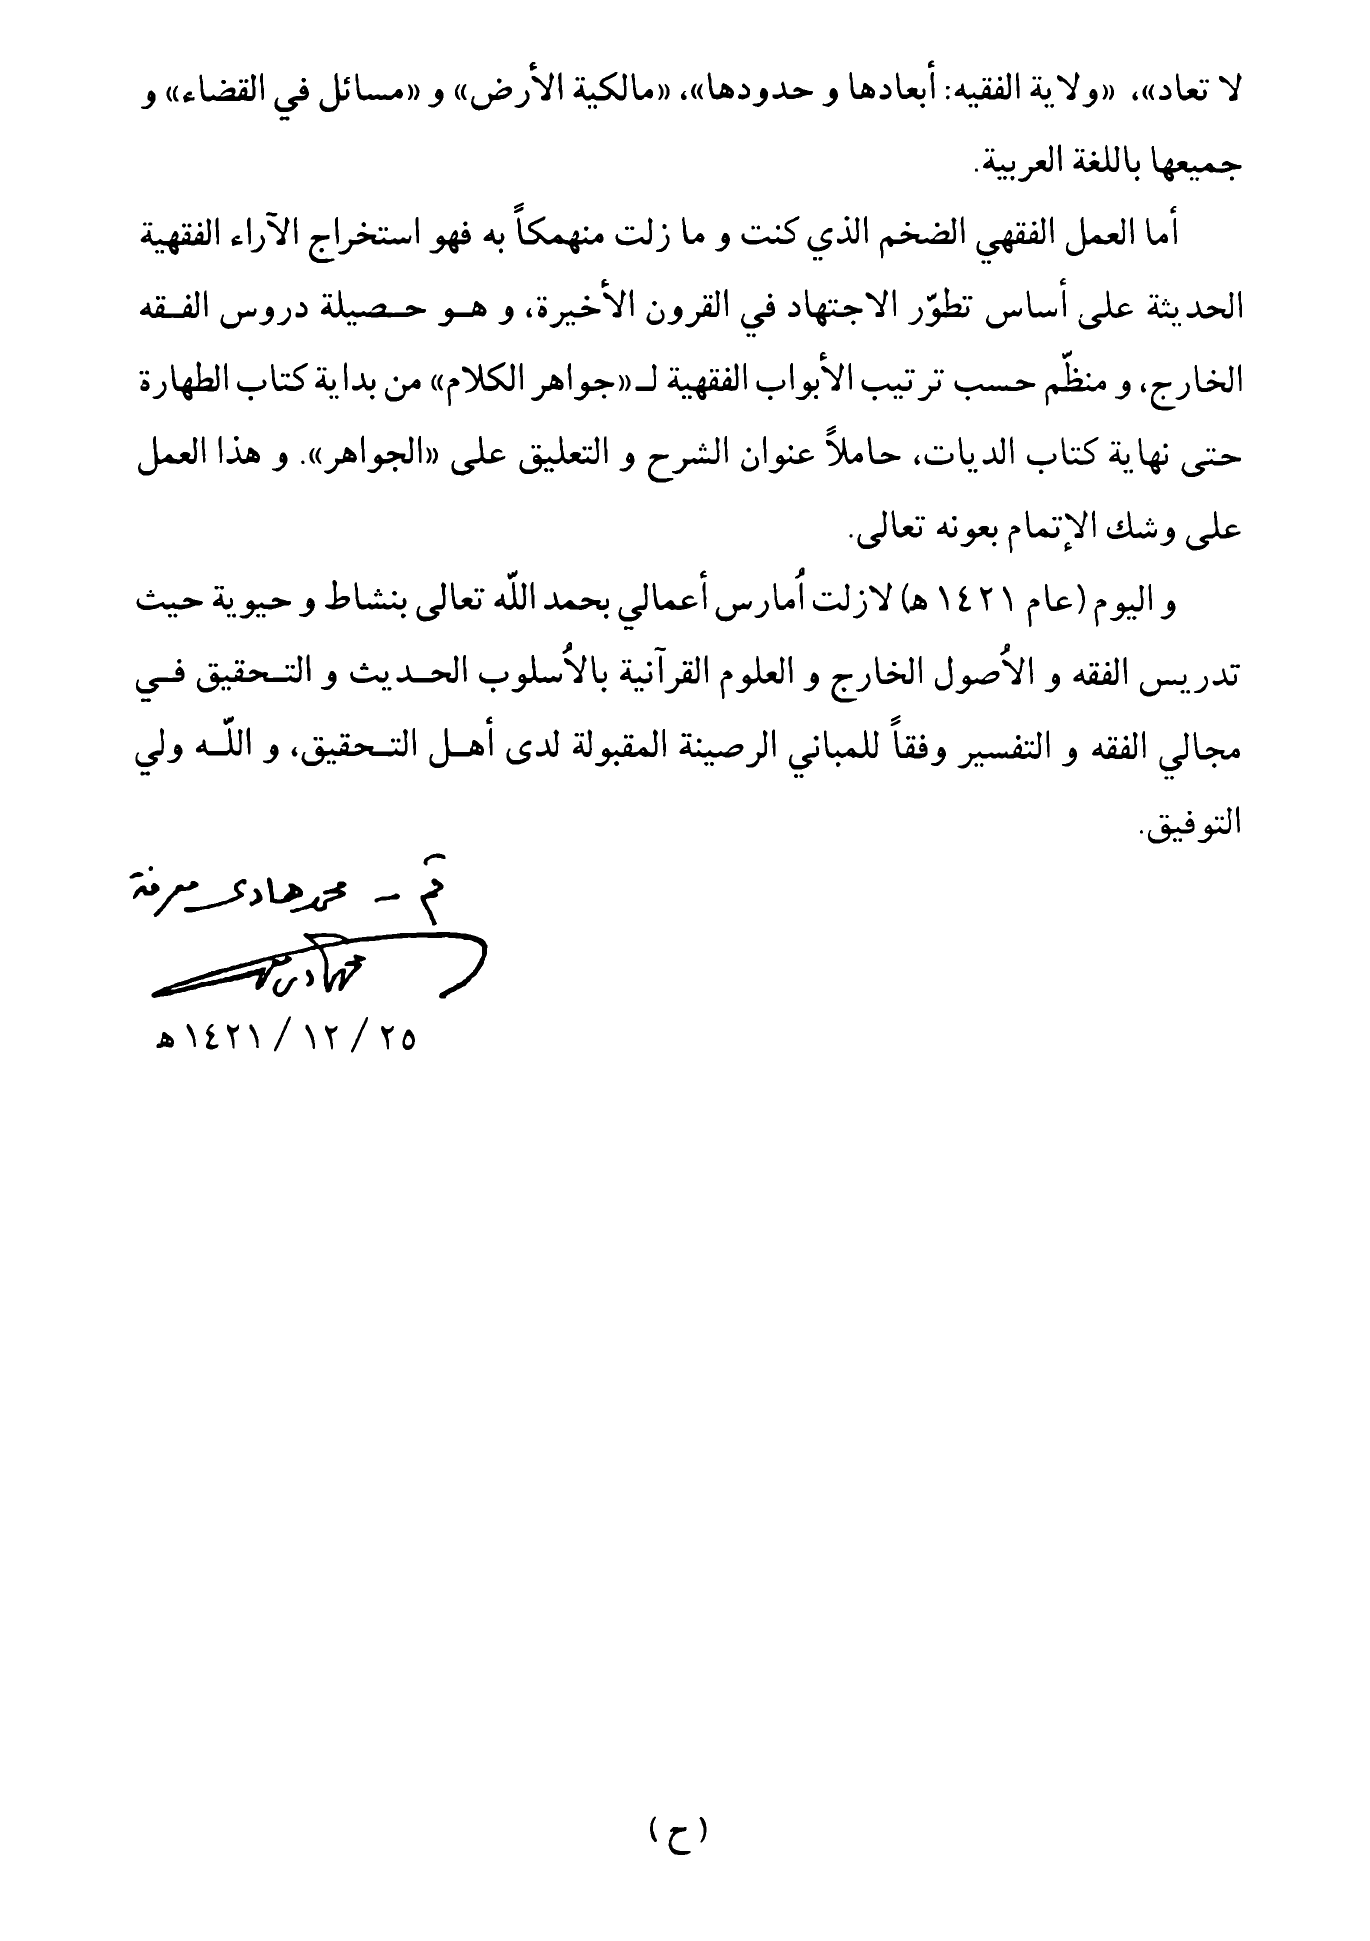 لا تعاد»، «ولاية الفقيه: أبعادها و حدودها»، «مالكية الأرض» و «مسائل في القضاء» و
جميعها باللغة العربية.
أما العمل الفقهي الضخم الذي كنت و ما زلت منهمكاً به فهو استخراج الآراء الفقهية
الحديثة على أساس تطوّر الاجتهاد في القرون الأخيرة، و هـو حـصيلة دروس الفـقه
الخارج، و منظّم حسب ترتيب الأبواب الفقهية لـ«جواهر الكلام» من بداية كتاب الطهارة
حتى نهاية كتاب الديات، حاملاً عنوان الشرح و التعليق على «الجواهر». و هذا العمل
على وشك الإتمام بعونه تعالى.
و اليوم (عام ١٤٢١ هـ) لازلت أُمارس أعمالي بحمد اللّه تعالى بنشاط و حيوية حيث
تدريس الفقه و الأُصول الخارج و العلوم القرآنية بالأُسلوب الحـديث و التـحقيق فـي
مجالي الفقه و التفسير وفقاً للمباني الرصينة المقبولة لدى أهـل التـحقيق، و اللّـه ولي
التوفيق.
قم - محمد هادى معرفة
٢٥ / ١٢ / ١٤٢١ هـ
(ح)